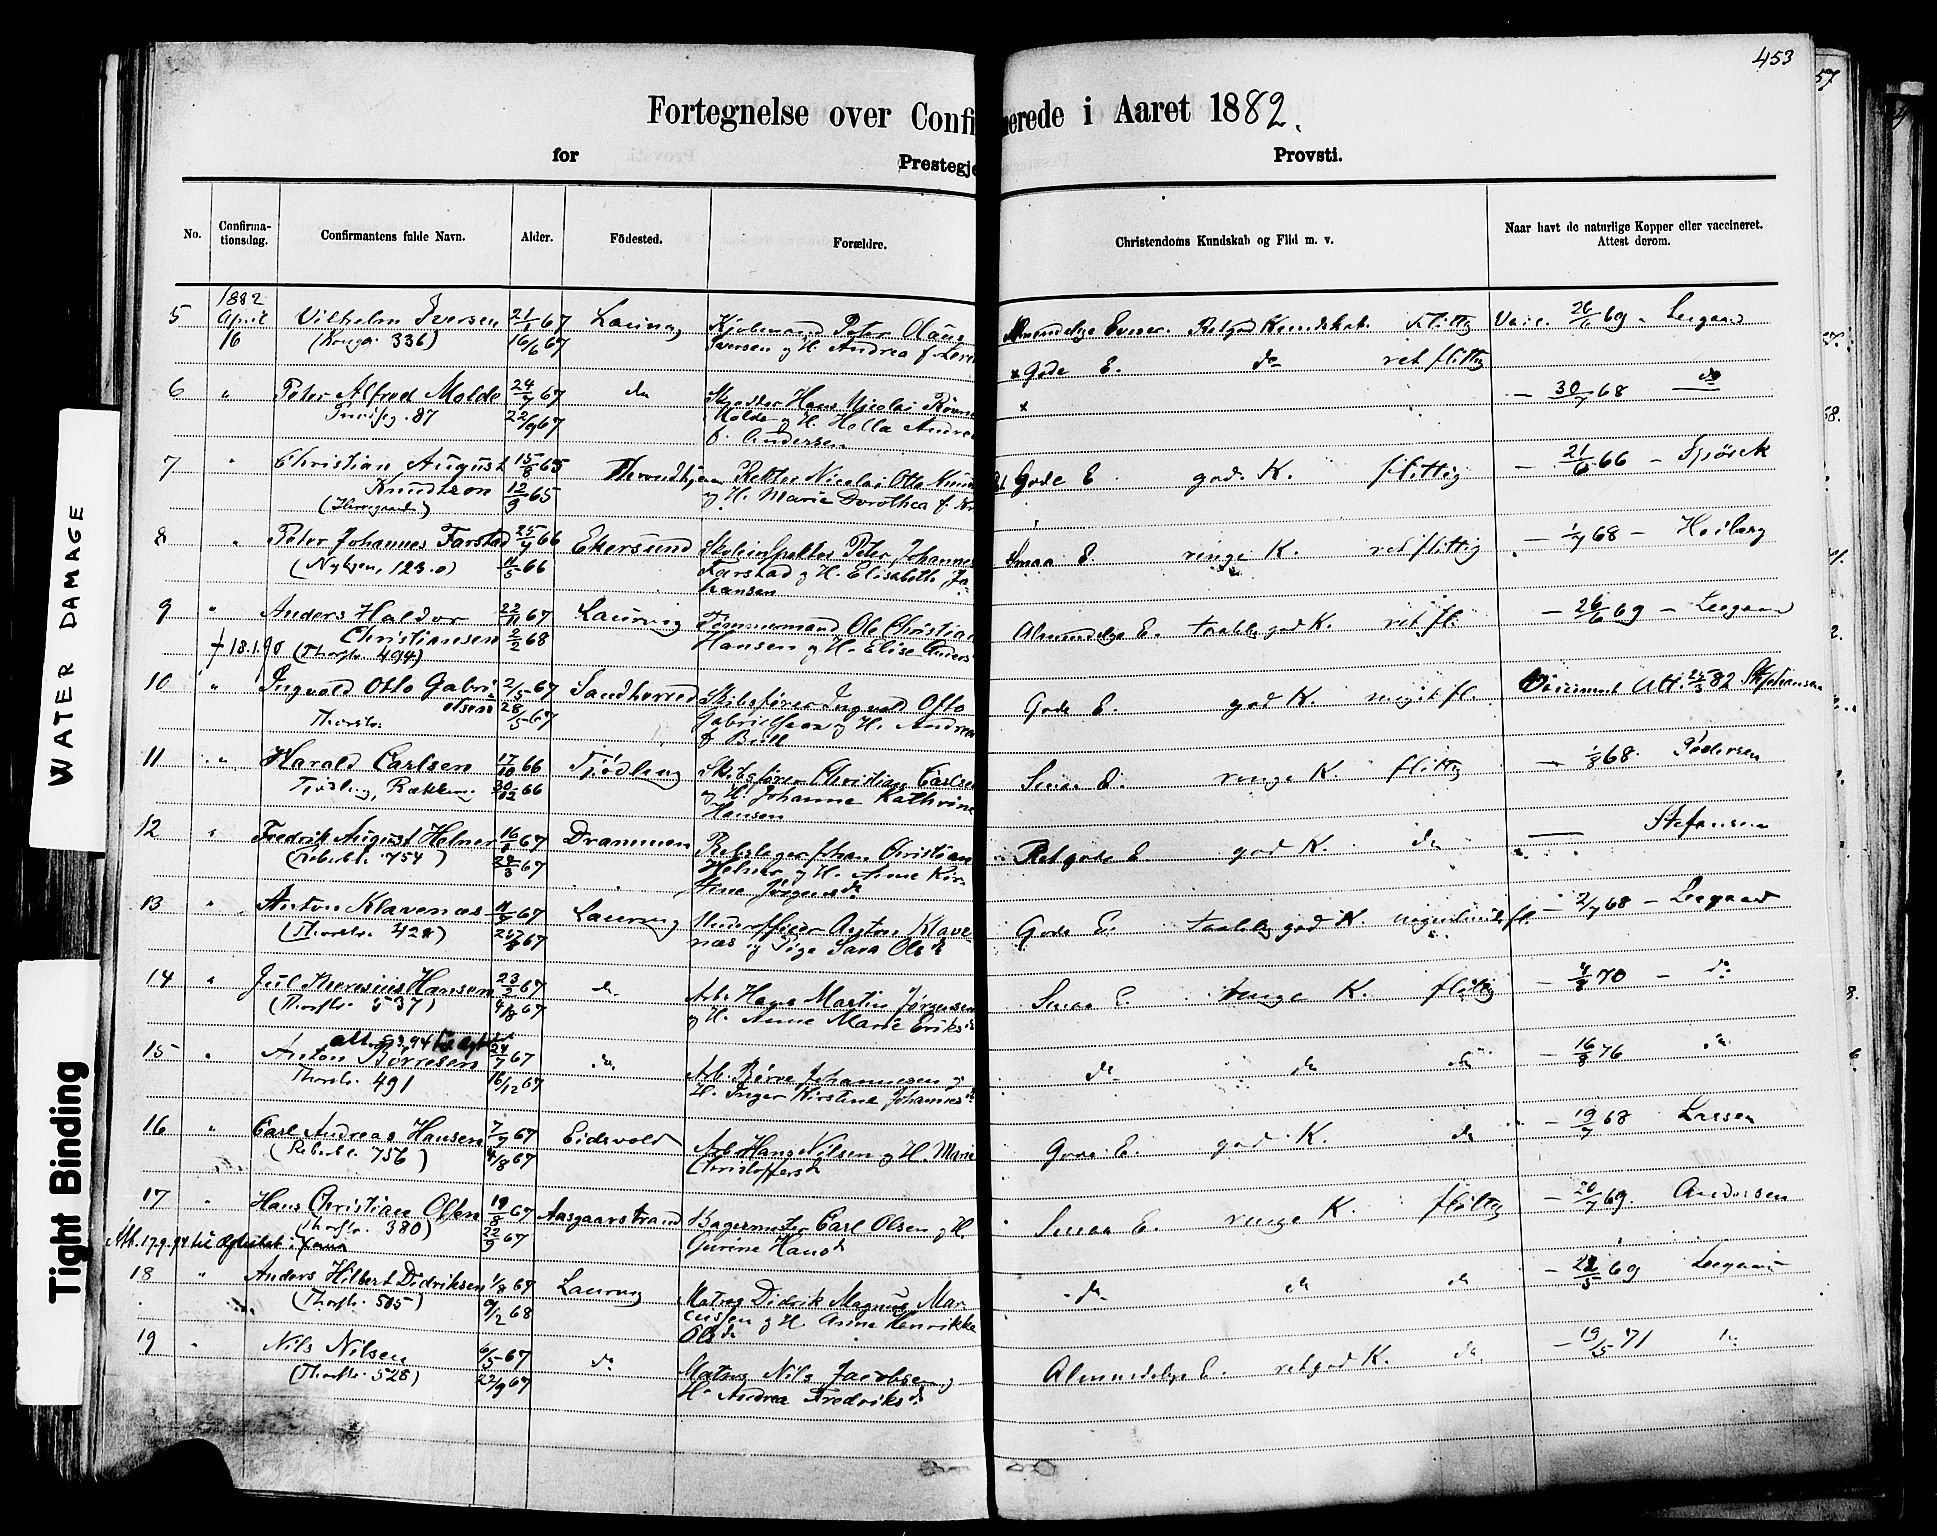 453
57
Fortegnelse over Confi merede i Aaret 1882.
for Prestegje Provsti.
No. Confirma-tionsdag. Confirmantens fulde Navn. Alder. Födested. Forældre. Christendoms Kundskab og Flid m. v. Naar havt de naturlige Kopper eller vaccineret. Attest derom.
1882
5 April Vilhelm Iversen 21/1 67 Laurvig Kjøbmand Peter Claus Almindelige Evner. Retgod Kundskab. Flittig Vacc. 26/6 69 - Leegaard
16 (Kongeg. 336) 16/6 67 Iversen og H. Andrea f.
x Gode E. do ret flittig
6 " Peter Alfred Molde 24/7 67 do Hans Nicolai x - 30/7 68 do
Prindsg. 87 22/9 67 Molde og H. Hella Andrea
f. Andersen
7 " Christian August 15/8 65 Throndhjem Rektor Nicolai Otto Gode E god K. flittig - 21/6 66 -
Knudtzon 12/9 65 og H. Marie Dorothea f.
8 " Peter Johannes Farstad 25/4 66 Ekersund Skoleinspektør Peter Johannes Smaa E. ringe K. ret flittig - 1/7 68 - Heiberg
(Nylgen, 123.a) 11/5 66 Farstad og H. Elisabeth Jo-
hansen
9 " Anders Haldor 22/11 67 Laurvig Tømmermand Ole Christian Almindelige E. taalelig god K. ret fl. - 26/6 69 - Leegaard
Christiansen 2/2 68 Hansen og H. Elise Anders
† 18.1.90 (Thorstr. 494)
10 " Ingvald Otto Gabri- 2/5 67 Sandherred Skibsfører Ingvald Otto Gode E. god K. meget fl. Vaccineret Att. 25/3 82 Johansen
elsen 28/5 67 Gabrielsen og H. Andrea
Thorstr. f. Bull
11 " Harald Carlsen 17/10 66 Tjødling Skibsfører Christian Carlsen Smaa E. ringe K. flittig - 1/8 68. Pedersen
Tjødling, Rækkevig 30/12 66 og H. Johanne Kathrine
Hansen
12 " Fredrik August Helner 16/1 67 Drammen Rebslager Johan Christian Ret gode E god K. do Stefansen
(Reberb. 754) 24/3 67 Helner og H. Anne Kir-
stine Jørgensdr.
13 " Anton Klavenæs 11/7 67 Laurvig Underofficer Anton Klave- Gode E. taalelig god K. fl. - 2/7 68 - Leegaard
(Thorstr. 428) 25/8 67 næs og Pige Sara Olsdr.
14 " Jul Theresius Hansen 23/2 67 do Arb. Hans Martin Jørgensen Smaa E. ringe K. flittig - 4/8 70 - do
(Thorstr. 537) 4/8 67 og H. Anne Marie Eriksdr.
15 " Anton Børresen 24/7 67 do Arb. Børre Johannesen og do do do - 16/8 76 do
Thorstr. 491 16/12 67 H. Inger Kirstine Johannesdr.
16 " Carl Andreas Hansen 7/7 67 Eidsvold Arb. Hans Nilsen og H. Marie Gode E. god K. do - 19/7 68 Larsen
(Reberb. 756) 4/8 67 Christoffersdr
17 " Hans Christian Olsen 19/8 67 Aasgaarstrand Bagermester Carl Olsen og H. Smaa E. ringe K. flittig - 26/7 69. Andersen
(Thorstr. 380) 22/9 67 Gurine Hansdr
Att. 17.9.94 til
18 " Anders Hilbert Didriksen 1/8 67 Laurvig Matros Didrik Magnus Mar- - do do do - 22/5 69 Leegaard
(Thorstr. 505) 9/2 68 cussen og H. Anne Henrikke
Olsdr
19 " Nils Nilsen 6/5 67 do Matros Nils Jacobsen og Almindelige E. ret god K. do - 19/5 71 do
(Thorstr. 528) 22/9 67 H. Andrea Fredriksdr.
WATER DAMAGE
Tight Binding